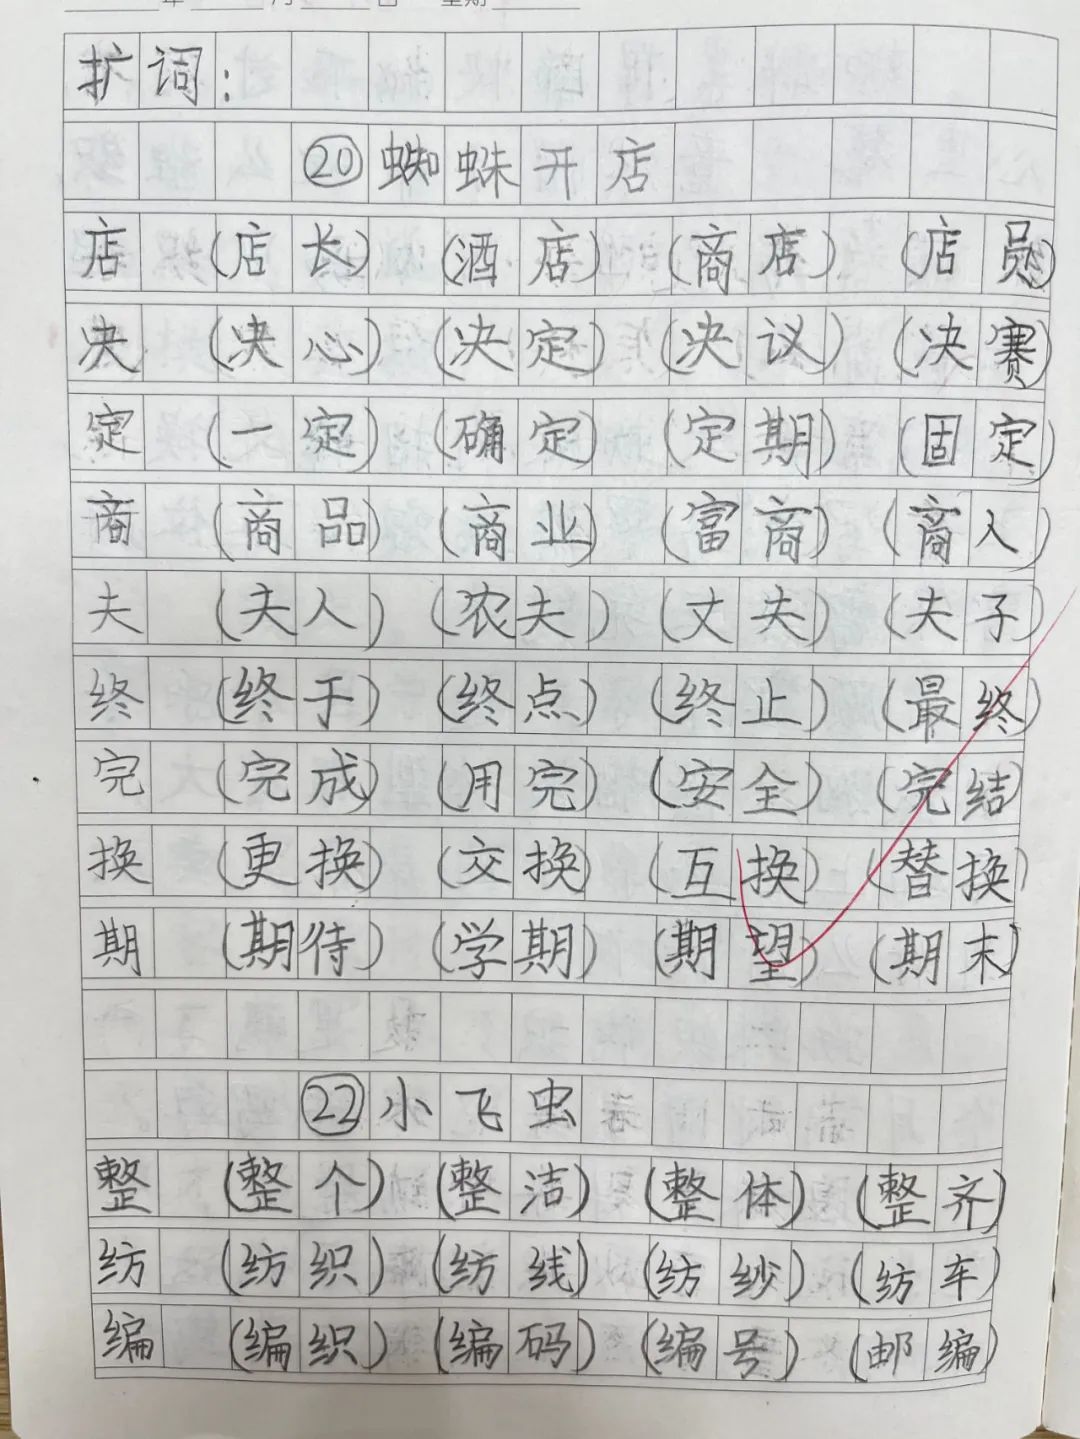 扩词：
⑳蜘蛛开店
店 (店长) (酒店) (商店) (店员)
决 (决心) (决定) (决议) (决赛)
定 (一定) (确定) (定期) (固定)
商 (商品) (商业) (富商) (商人)
夫 (夫人) (农夫) (丈夫) (夫子)
终 (终于) (终点) (终止) (最终)
完 (完成) (用完) (安全) (完结)
换 (更换) (交换) (互换) (替换)
期 (期待) (学期) (期望) (期末)
㉒小飞虫
整 (整个) (整洁) (整体) (整齐)
纺 (纺织) (纺线) (纺纱) (纺车)
编 (编织) (编码) (编号) (邮编)